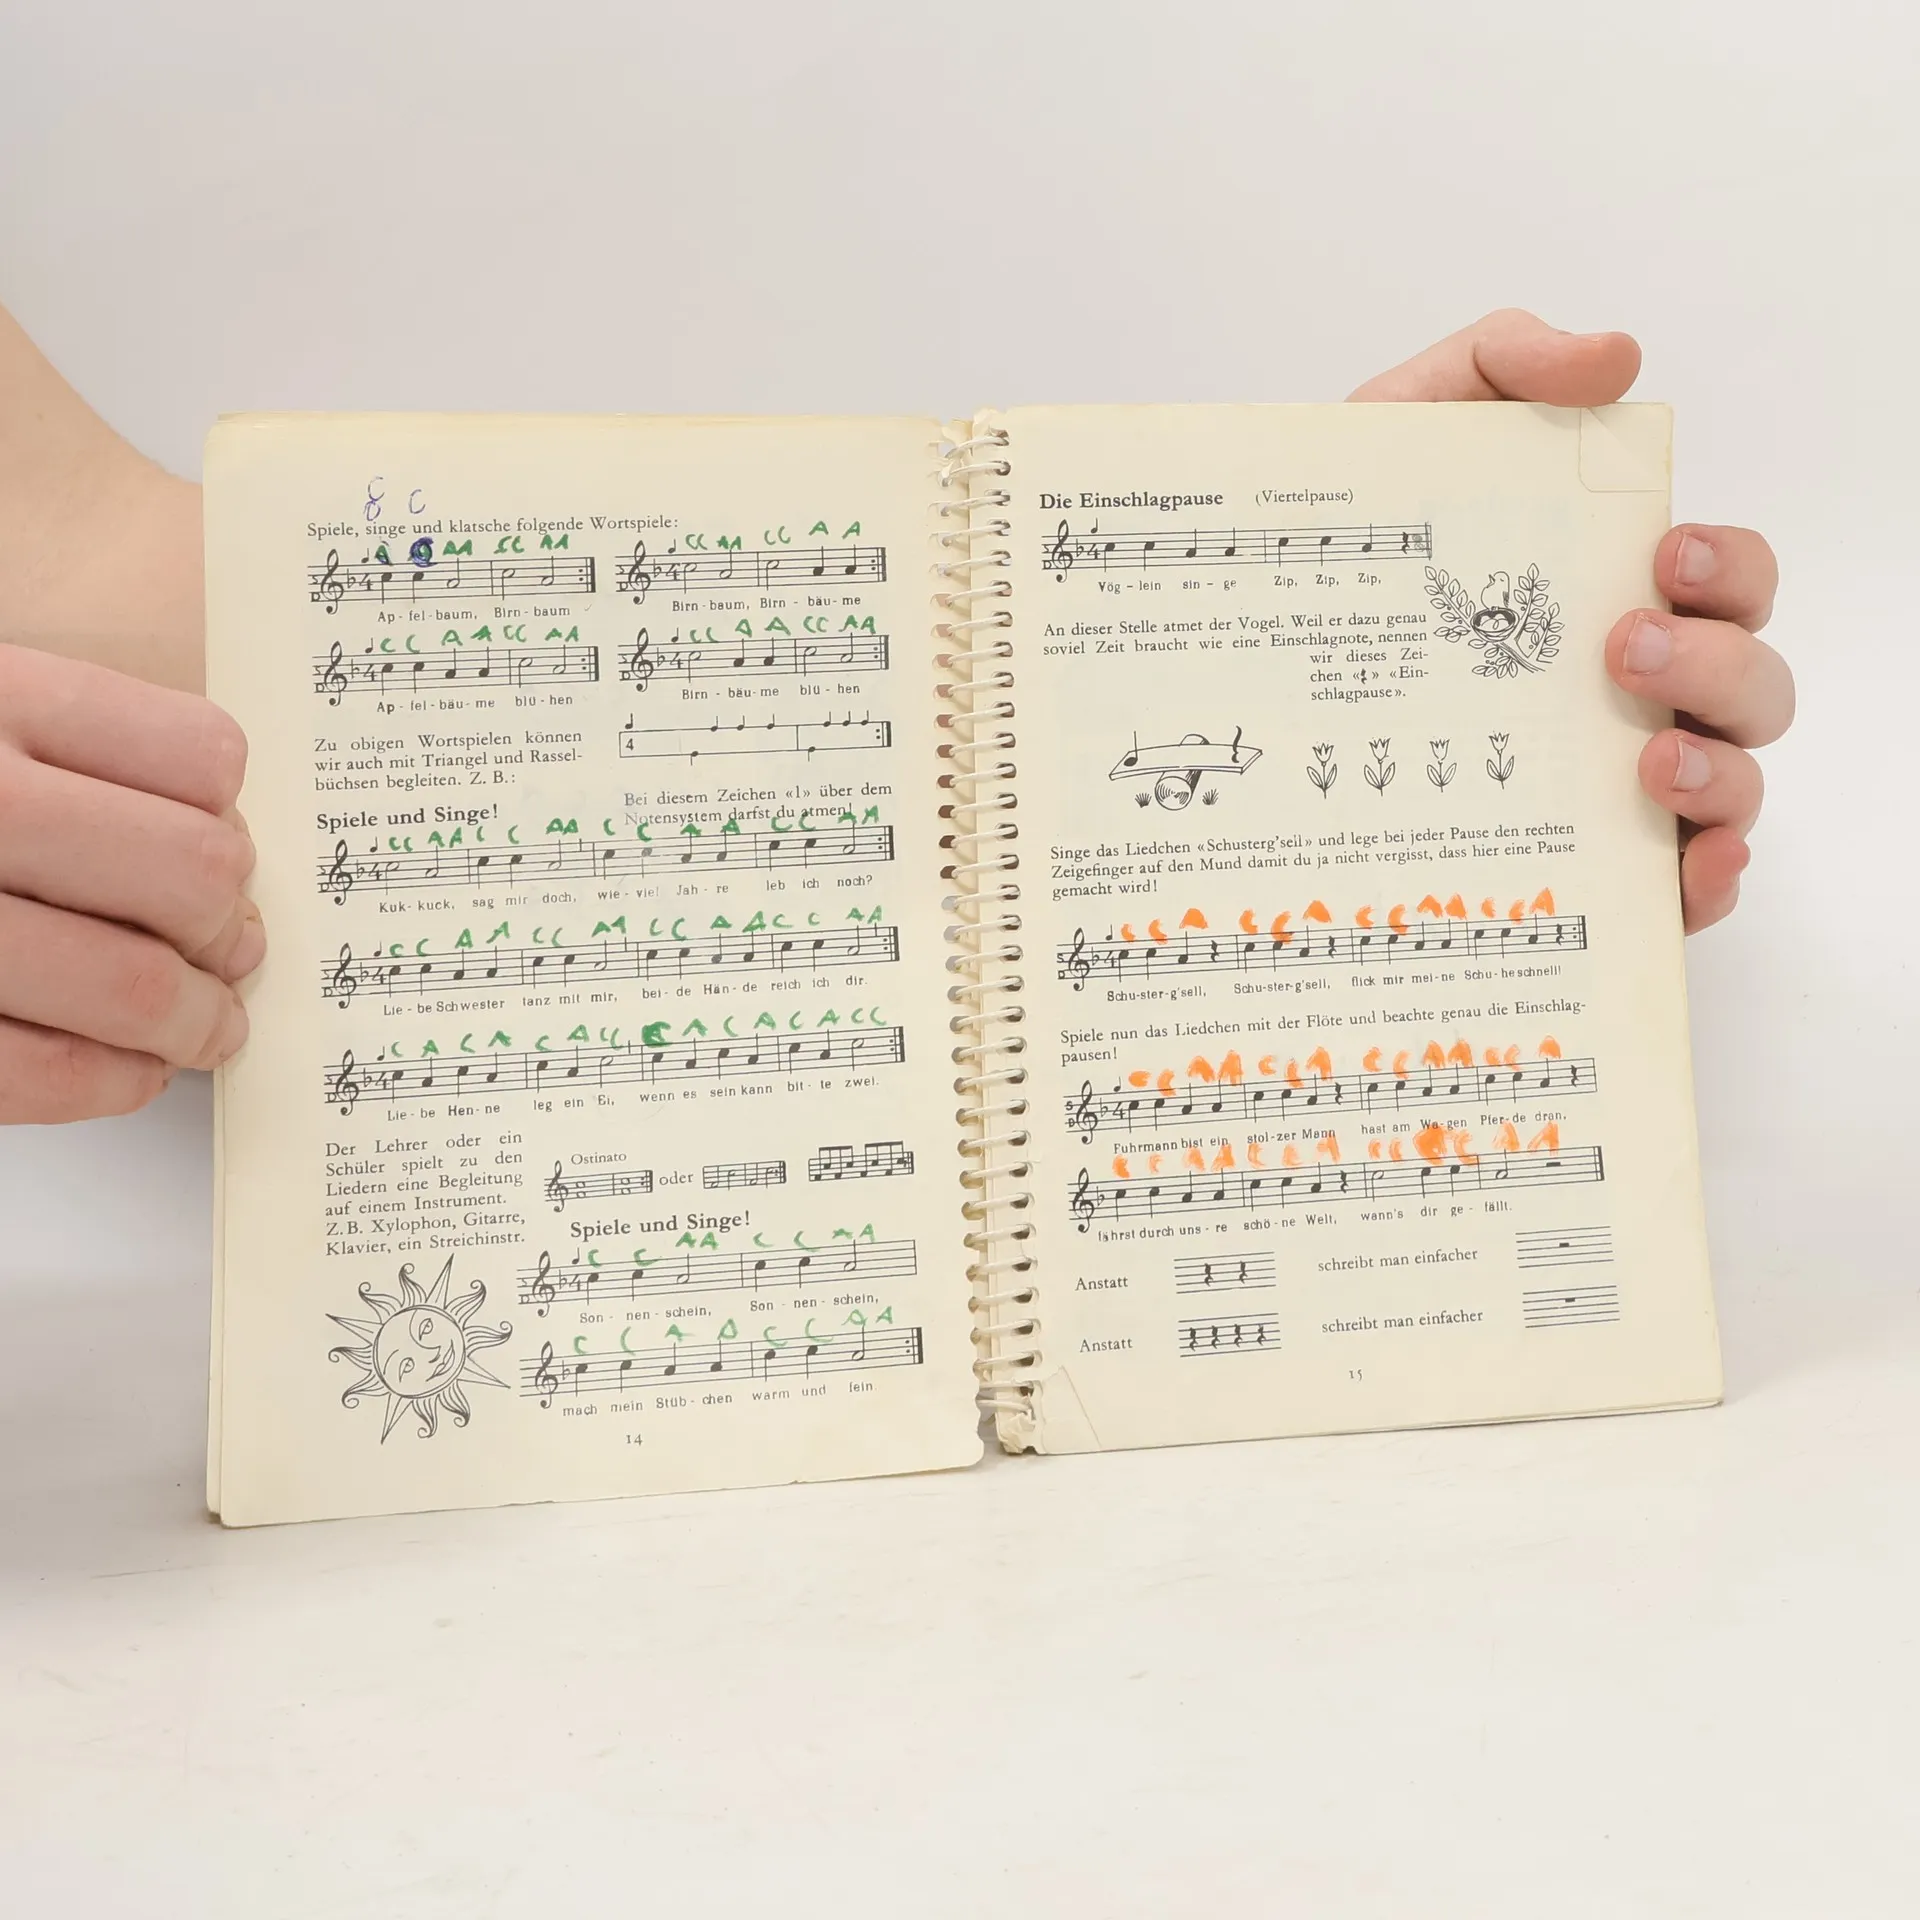 C
C
Spiele, singe und klatsche folgende Wortspiele:
AA CC AA
Ap-fel-baum, Birn-baum
CC AA CC A A
Birn-baum, Birn-bäu-me
C C A A CC AA
Ap-fel-bäu-me blü-hen
CC A A CC AA
Birn-bäu-me blü-hen
Zu obigen Wortspielen können
wir auch mit Triangel und Rassel-
büchsen begleiten. Z. B.:
4
Bei diesem Zeichen «l» über dem
Notensystem darfst du atmen!
Spiele und Singe!
CC AA C C AA C C A A CC AA
Kuk-kuck, sag mir doch, wie-viel Jah-re leb ich noch?
C C A A CC AA CC A A C C AA
Lie-be Schwester tanz mit mir, bei-de Hän-de reich ich dir.
C A C A C A CC C A C A C A CC
Lie-be Hen-ne leg ein Ei, wenn es sein kann bit-te zwei.
Der Lehrer oder ein
Schüler spielt zu den
Liedern eine Begleitung
auf einem Instrument.
Z. B. Xylophon, Gitarre,
Klavier, ein Streichinstr.
Ostinato
oder
Spiele und Singe!
C C AA C C AA
Son-nen-schein, Son-nen-schein,
C C A A C C A A
mach mein Stüb-chen warm und fein.
14
Die Einschlagpause (Viertelpause)
Vög-lein sin-ge Zip, Zip, Zip,
An dieser Stelle atmet der Vogel. Weil er dazu genau
soviel Zeit braucht wie eine Einschlagnote, nennen
wir dieses Zei-
chen «𝄽» «Ein-
schlagpause».
Singe das Liedchen «Schusterg'sell» und lege bei jeder Pause den rechten
Zeigefinger auf den Mund damit du ja nicht vergisst, dass hier eine Pause
gemacht wird!
C C A C C A C C A A C C A
Schu-ster-g'sell, Schu-ster-g'sell, flick mir mei-ne Schu-he schnell!
Spiele nun das Liedchen mit der Flöte und beachte genau die Einschlag-
pausen!
C C A A C C A C C A A C C A
Fuhrmann bist ein stol-zer Mann hast am Wa-gen Pfer-de dran,
C C A A C C A C C C A A
fährst durch uns-re schö-ne Welt, wann's dir ge-fällt.
Anstatt schreibt man einfacher
Anstatt schreibt man einfacher
15